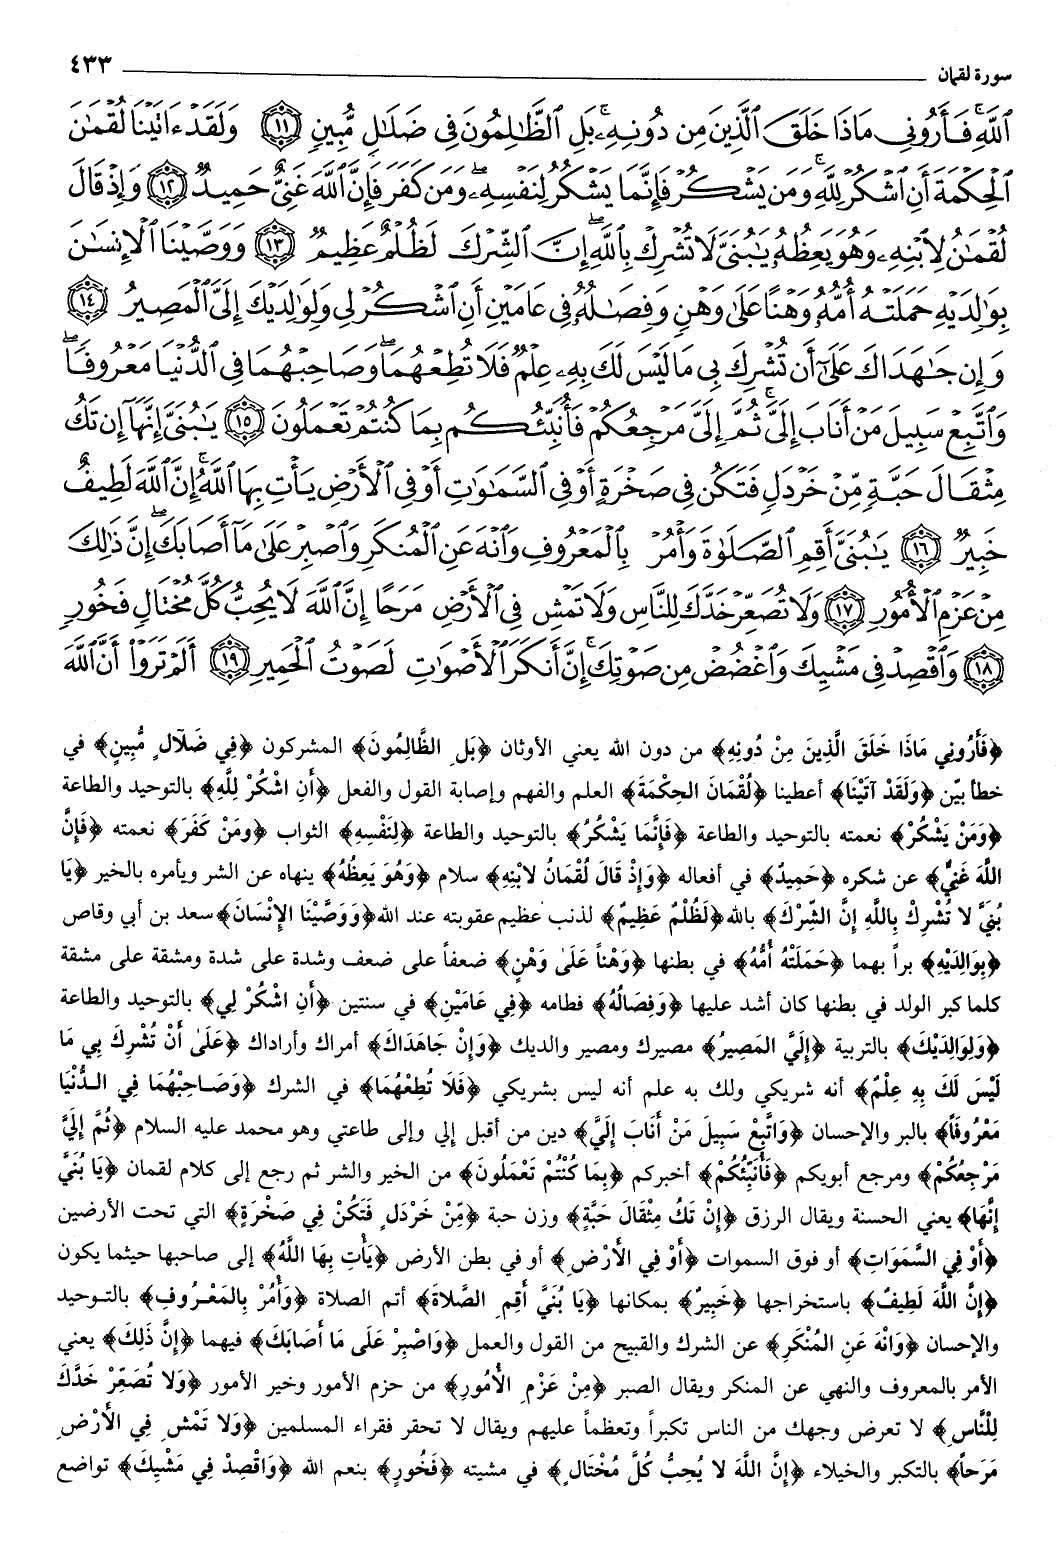 سورة لقمان ٤٣٣
ٱللَّهِ فَأَرُونِى مَاذَا خَلَقَ ٱلَّذِينَ مِن دُونِهِۦ بَلِ ٱلظَّٰلِمُونَ فِى ضَلَٰلٍ مُّبِينٍ ١١ وَلَقَدْ ءَاتَيْنَا لُقْمَٰنَ
ٱلْحِكْمَةَ أَنِ ٱشْكُرْ لِلَّهِ وَمَن يَشْكُرْ فَإِنَّمَا يَشْكُرُ لِنَفْسِهِۦ وَمَن كَفَرَ فَإِنَّ ٱللَّهَ غَنِىٌّ حَمِيدٌ ١٢ وَإِذْ قَالَ
لُقْمَٰنُ لِٱبْنِهِۦ وَهُوَ يَعِظُهُۥ يَٰبُنَىَّ لَا تُشْرِكْ بِٱللَّهِ إِنَّ ٱلشِّرْكَ لَظُلْمٌ عَظِيمٌ ١٣ وَوَصَّيْنَا ٱلْإِنسَٰنَ
بِوَٰلِدَيْهِ حَمَلَتْهُ أُمُّهُۥ وَهْنًا عَلَىٰ وَهْنٍ وَفِصَٰلُهُۥ فِى عَامَيْنِ أَنِ ٱشْكُرْ لِى وَلِوَٰلِدَيْكَ إِلَىَّ ٱلْمَصِيرُ ١٤
وَإِن جَٰهَدَاكَ عَلَىٰٓ أَن تُشْرِكَ بِى مَا لَيْسَ لَكَ بِهِۦ عِلْمٌ فَلَا تُطِعْهُمَا وَصَاحِبْهُمَا فِى ٱلدُّنْيَا مَعْرُوفًا
وَٱتَّبِعْ سَبِيلَ مَنْ أَنَابَ إِلَىَّ ثُمَّ إِلَىَّ مَرْجِعُكُمْ فَأُنَبِّئُكُم بِمَا كُنتُمْ تَعْمَلُونَ ١٥ يَٰبُنَىَّ إِنَّهَآ إِن تَكُ
مِثْقَالَ حَبَّةٍ مِّنْ خَرْدَلٍ فَتَكُن فِى صَخْرَةٍ أَوْ فِى ٱلسَّمَٰوَٰتِ أَوْ فِى ٱلْأَرْضِ يَأْتِ بِهَا ٱللَّهُ إِنَّ ٱللَّهَ لَطِيفٌ
خَبِيرٌ ١٦ يَٰبُنَىَّ أَقِمِ ٱلصَّلَوٰةَ وَأْمُرْ بِٱلْمَعْرُوفِ وَٱنْهَ عَنِ ٱلْمُنكَرِ وَٱصْبِرْ عَلَىٰ مَآ أَصَابَكَ إِنَّ ذَٰلِكَ
مِنْ عَزْمِ ٱلْأُمُورِ ١٧ وَلَا تُصَعِّرْ خَدَّكَ لِلنَّاسِ وَلَا تَمْشِ فِى ٱلْأَرْضِ مَرَحًا إِنَّ ٱللَّهَ لَا يُحِبُّ كُلَّ مُخْتَالٍ فَخُورٍ
١٨ وَٱقْصِدْ فِى مَشْيِكَ وَٱغْضُضْ مِن صَوْتِكَ إِنَّ أَنكَرَ ٱلْأَصْوَٰتِ لَصَوْتُ ٱلْحَمِيرِ ١٩ أَلَمْ تَرَوْا۟ أَنَّ ٱللَّهَ
﴿فَأَرُونِي مَاذَا خَلَقَ الَّذِينَ مِنْ دُونِهِ﴾ من دون الله يعني الأوثان ﴿بَلِ الظَّالِمُونَ﴾ المشركون ﴿فِي ضَلَالٍ مُّبِينٍ﴾ في
خطأ بيّن ﴿وَلَقَدْ آتَيْنَا﴾ أعطينا ﴿لُقْمَانَ الحِكْمَةَ﴾ العلم والفهم وإصابة القول والفعل ﴿أَنِ اشْكُرْ لِلَّهِ﴾ بالتوحيد والطاعة
﴿وَمَنْ يَشْكُرْ﴾ نعمته بالتوحيد والطاعة ﴿فَإِنَّمَا يَشْكُرُ﴾ بالتوحيد والطاعة ﴿لِنَفْسِهِ﴾ الثواب ﴿وَمَنْ كَفَرَ﴾ نعمته ﴿فَإِنَّ
اللَّهَ غَنِيٌّ﴾ عن شكره ﴿حَمِيدٌ﴾ في أفعاله ﴿وَإِذْ قَالَ لُقْمَانُ لابْنِهِ﴾ سلام ﴿وَهُوَ يَعِظُهُ﴾ ينهاه عن الشر ويأمره بالخير ﴿يَا
بُنَيَّ لا تُشْرِكْ بِاللَّهِ إِنَّ الشِّرْكَ﴾ بالله ﴿لَظُلْمٌ عَظِيمٌ﴾ لذنب عظيم عقوبته عند الله ﴿وَوَصَّيْنَا الإِنْسَانَ﴾ سعد بن أبي وقاص
﴿بِوَالِدَيْهِ﴾ براً بهما ﴿حَمَلَتْهُ أُمُّهُ﴾ في بطنها ﴿وَهْناً عَلَىٰ وَهْنٍ﴾ ضعفاً على ضعف وشدة على شدة ومشقة على مشقة
كلما كبر الولد في بطنها كان أشد عليها ﴿وَفِصَالُهُ﴾ فطامه ﴿فِي عَامَيْنِ﴾ في سنتين ﴿أَنِ اشْكُرْ لِي﴾ بالتوحيد والطاعة
﴿وَلِوَالِدَيْكَ﴾ بالتربية ﴿إِلَيَّ المَصِيرُ﴾ مصيرك ومصير والديك ﴿وَإِنْ جَاهَدَاكَ﴾ أمراك وأراداك ﴿عَلَىٰ أَنْ تُشْرِكَ بِي مَا
لَيْسَ لَكَ بِهِ عِلْمٌ﴾ أنه شريكي ولك به علم أنه ليس بشريكي ﴿فَلَا تُطِعْهُمَا﴾ في الشرك ﴿وَصَاحِبْهُمَا فِي الدُّنْيَا
مَعْرُوفَاً﴾ بالبر والإحسان ﴿وَاتَّبِعْ سَبِيلَ مَنْ أَنَابَ إِلَيَّ﴾ دين من أقبل إلي وإلى طاعتي وهو محمد عليه السلام ﴿ثُمَّ إِلَيَّ
مَرْجِعُكُمْ﴾ ومرجع أبويكم ﴿فَأُنَبِّئُكُمْ﴾ أخبركم ﴿بِمَا كُنْتُمْ تَعْمَلُونَ﴾ من الخير والشر ثم رجع إلى كلام لقمان ﴿يَا بُنَيَّ
إِنَّهَا﴾ يعني الحسنة ويقال الرزق ﴿إِنْ تَكُ مِثْقَالَ حَبَّةٍ﴾ وزن حبة ﴿مِّنْ خَرْدَلٍ فَتَكُنْ فِي صَخْرَةٍ﴾ التي تحت الأرضين
﴿أَوْ فِي السَّمَوَاتِ﴾ أو فوق السموات ﴿أَوْ فِي الأَرْضِ﴾ أو في بطن الأرض ﴿يَأْتِ بِهَا اللَّهُ﴾ إلى صاحبها حيثما يكون
﴿إِنَّ اللَّهَ لَطِيفٌ﴾ باستخراجها ﴿خَبِيرٌ﴾ بمكانها ﴿يَا بُنَيَّ أَقِمِ الصَّلاةَ﴾ أتم الصلاة ﴿وَأْمُرْ بِالمَعْرُوفِ﴾ بالتوحيد
والإحسان ﴿وَانْهَ عَنِ المُنْكَرِ﴾ عن الشرك والقبيح من القول والعمل ﴿وَاصْبِرْ عَلَى مَا أَصَابَكَ﴾ فيهما ﴿إِنَّ ذَلِكَ﴾ يعني
الأمر بالمعروف والنهي عن المنكر ويقال الصبر ﴿مِنْ عَزْمِ الأُمُورِ﴾ من حزم الأمور وخير الأمور ﴿وَلا تُصَعِّرْ خَدَّكَ
لِلْنَّاسِ﴾ لا تعرض وجهك من الناس تكبراً وتعظماً عليهم ويقال لا تحقر فقراء المسلمين ﴿وَلا تَمْشِ فِي الأَرْضِ
مَرَحاً﴾ بالتكبر والخيلاء ﴿إِنَّ اللَّهَ لا يُحِبُّ كُلَّ مُخْتَالٍ﴾ في مشيته ﴿فَخُورٍ﴾ بنعم الله ﴿وَاقْصِدْ فِي مَشْيِكَ﴾ تواضع